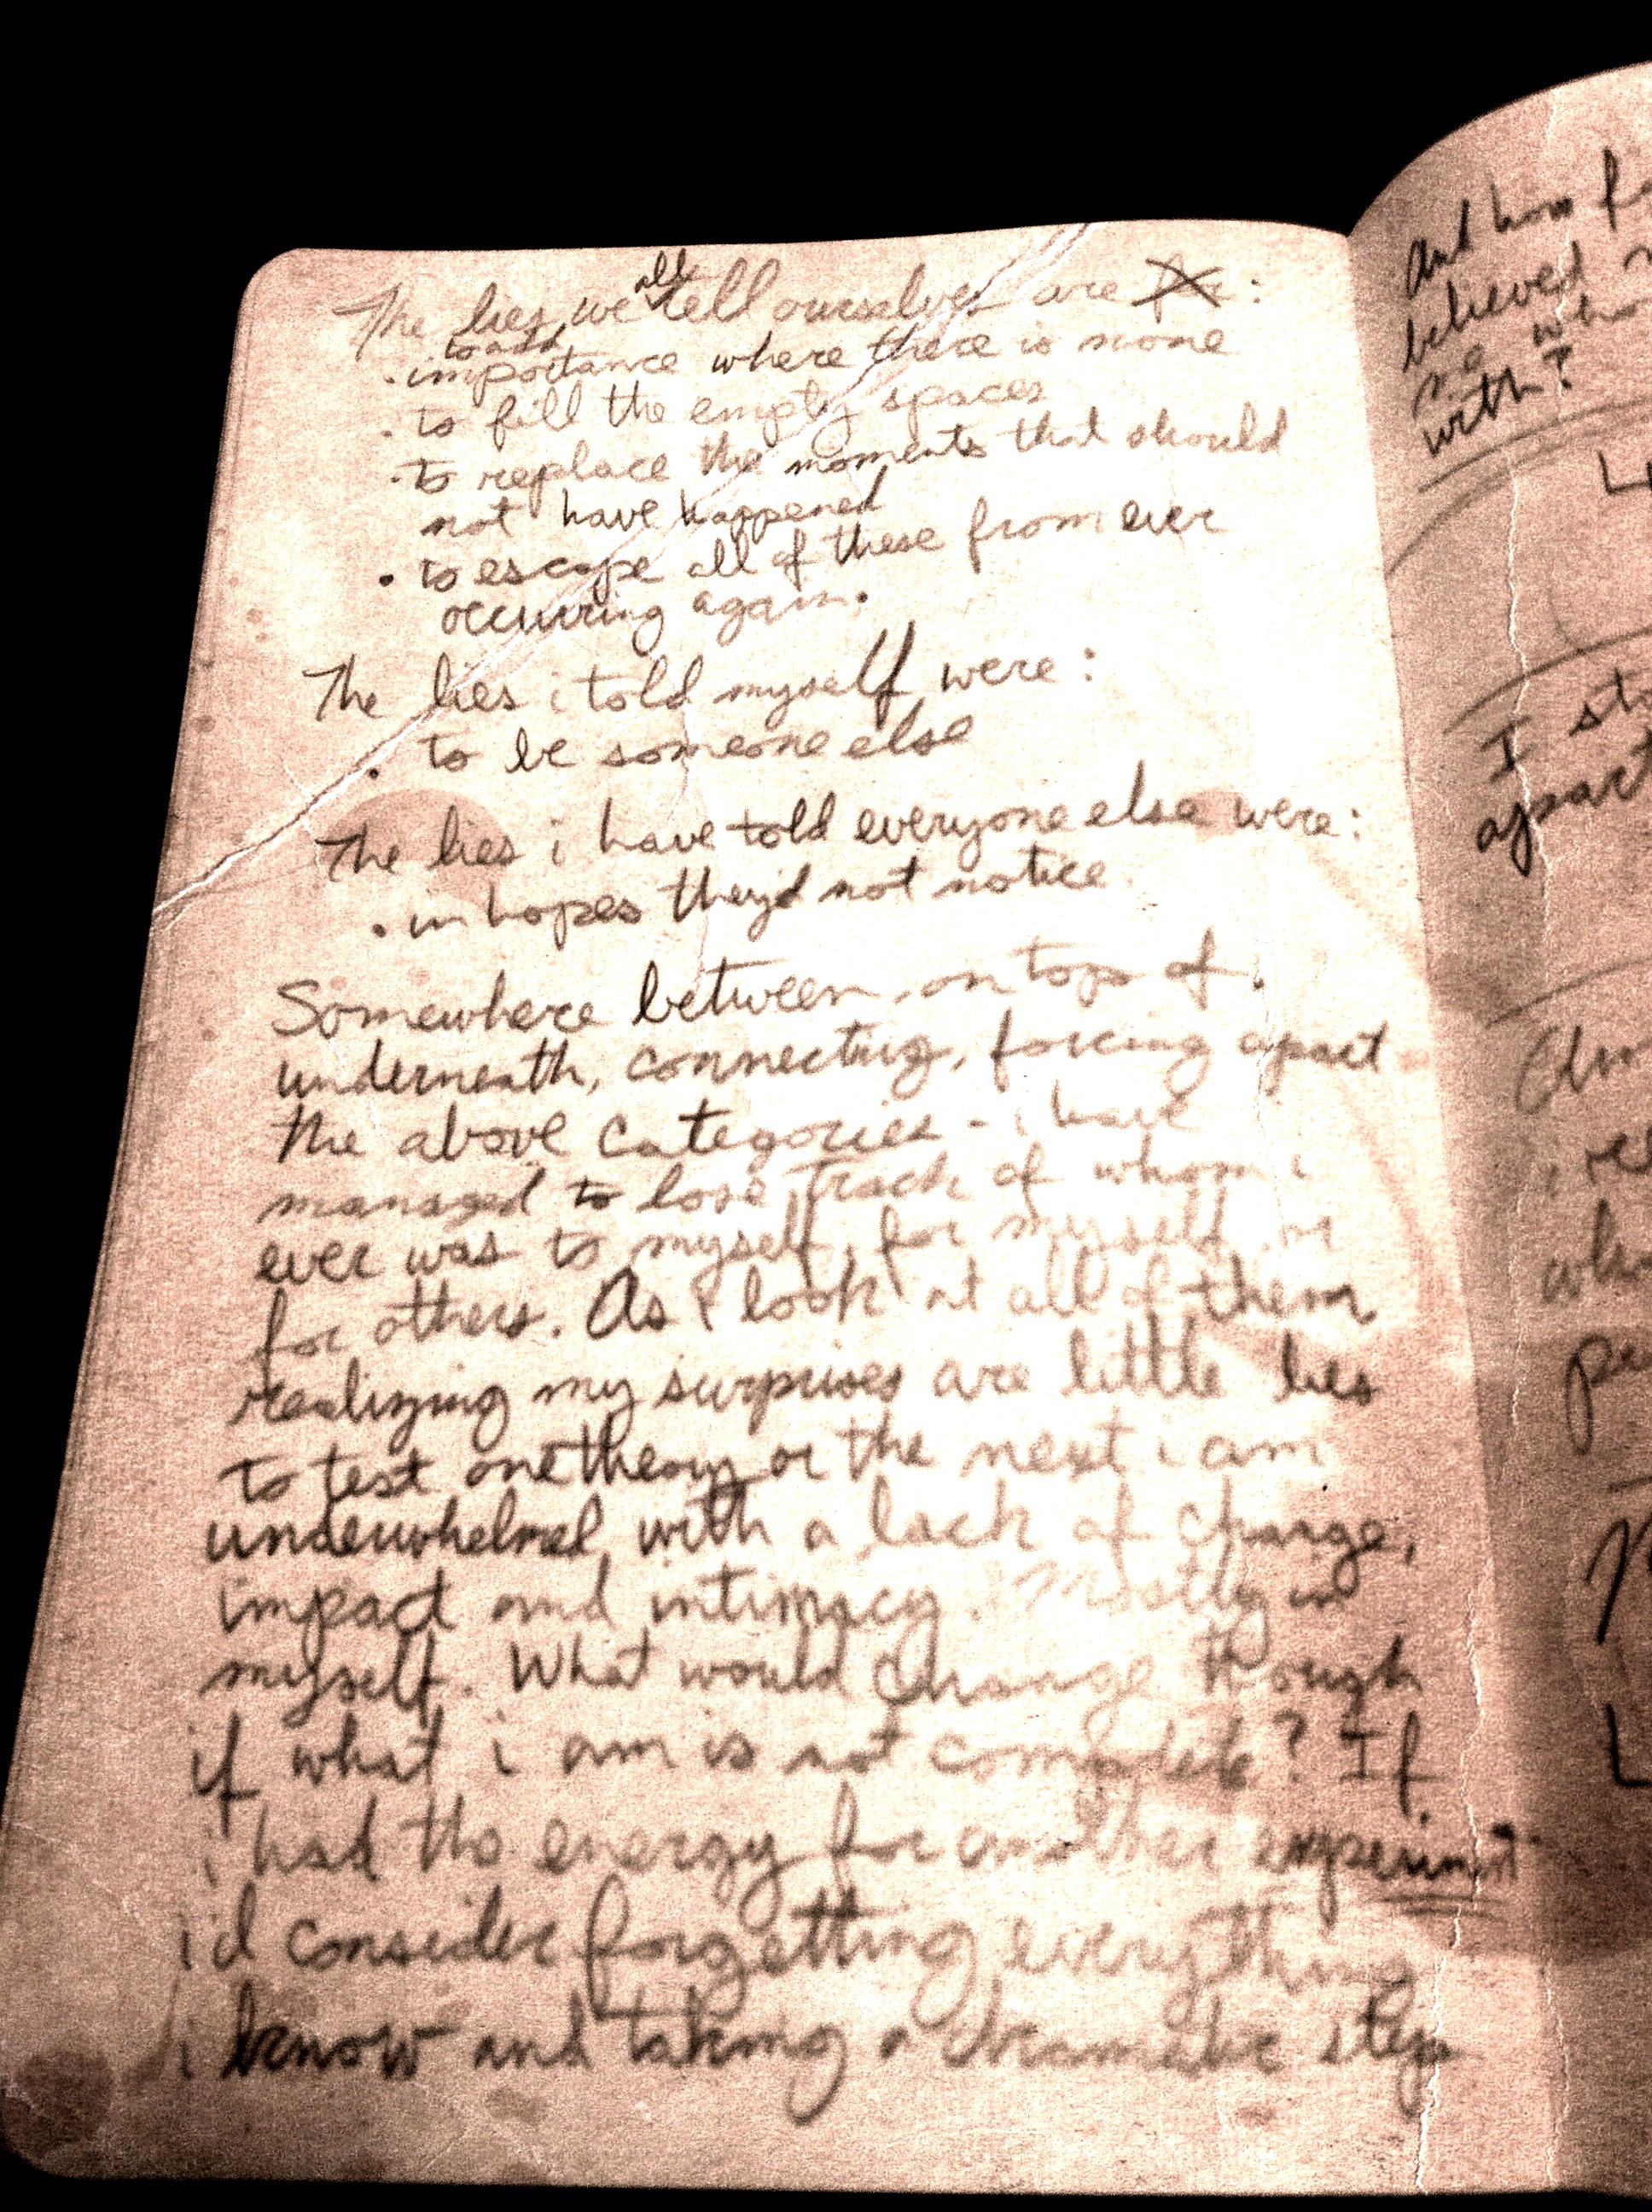 The lies we all tell ourselves are :
· to add importance where there is none
· to fill the empty spaces
· to replace the moments that should
not have happened
· to escape all of these from ever
occurring again.
The lies i told myself were:
· to be someone else
The lies i have told everyone else were:
· in hopes they'd not notice.
Somewhere between, on top of,
underneath, connecting, forcing apart
the above categories - i have
managed to lose track of whom i
ever was to myself, for myself or
for others. As I look at all of them
realizing my surprises are little lies
to test one theory or the next i am
underwhelmed with a lack of change,
impact and intimacy. Mostly in
myself. What would change though
if what i am is not complete? If
i had the energy for another experiment
i'd consider forgetting everything
i know and taking a dramatic step
and how
believed
me who
with?
I
apart